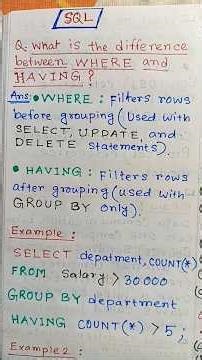 SQL
Q: What is the difference
between WHERE and
HAVING?
Ans: • WHERE : Filters rows
before grouping (Used with
SELECT, UPDATE, and
DELETE statements).
• HAVING : Filters rows
after grouping (used with
GROUP BY only).
Example :
SELECT depatment, COUNT(*)
FROM Salary > 30000
GROUP BY department
HAVING COUNT(*) > 5;
Example 2 :